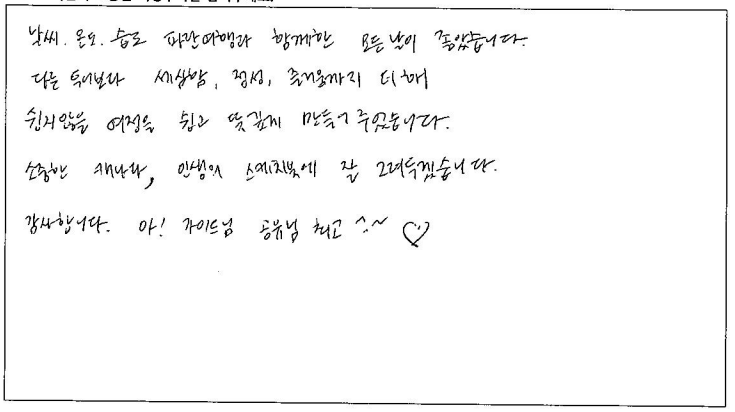 날씨. 온도. 습도 파란여행과 함께한 모든날이 좋았습니다.
다른 투어보다 세심함, 정성, 즐거움까지 더해
쉽지않을 여정을 쉽고 뜻깊게 만들어 주었습니다.
소중한 캐나다, 인생의 스케치북에 잘 그려두겠습니다.
감사합니다. 아! 가이드님 공유님 최고 ^.^~ ♡